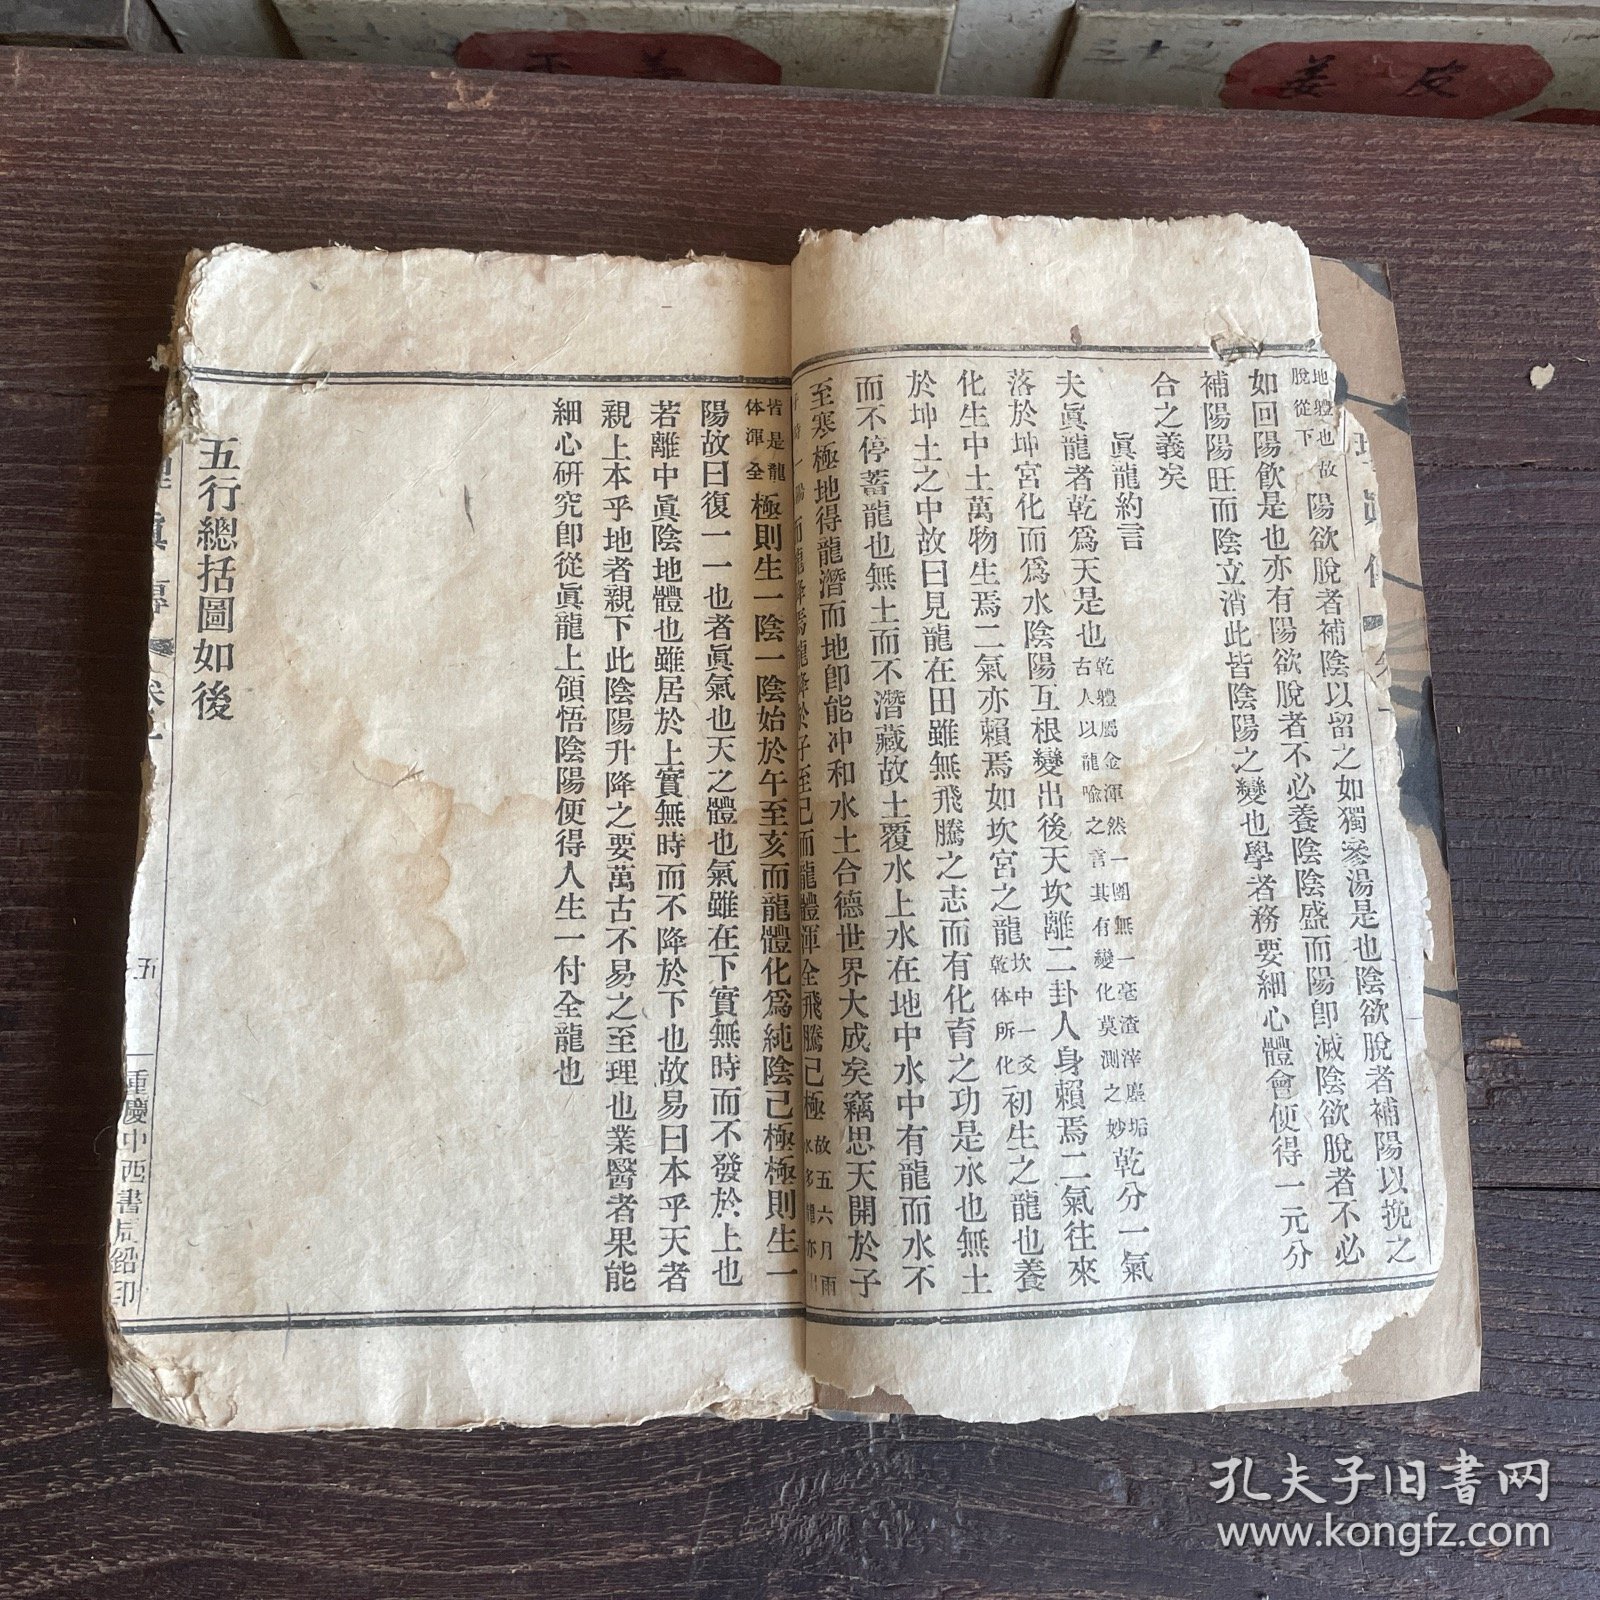 姜皮
地體也故
脫從下
陽欲脫者補陰以留之如獨滲湯是也陰欲脫者補陽以挽之
如回陽飲是也亦有陽欲脫者不必養陰陰盛而陽卽滅陰欲脫者不必
補陽陽旺而陰立消此皆陰陽之變也學者務要細心體會便得一元分
合之義矣
眞龍約言
夫眞龍者乾爲天是也
乾體屬金渾然一團無一毫渣滓塵垢
古人以龍喩之言其有變化莫測之妙
乾分一氣
落於坤宮化而爲水陰陽互根變出後天坎離二卦人身賴焉二氣往來
化生中土萬物生焉二氣亦賴焉如坎宮之龍
坎中一爻
乾体所化
初生之龍也養
於坤土之中故曰見龍在田雖無飛騰之志而有化育之功是水也無土
而不停蓄龍也無土而不潛藏故土覆水上水在地中水中有龍而水不
至寒極地得龍潛而地卽能冲和水土合德世界大成矣竊思天開於子
一陽
而龍降焉龍降於子至巳而龍體渾全飛騰已極
故五六月雨
水多龍亦
皆是龍
体渾全
極則生一陰一陰始於午至亥而龍體化爲純陰已極極則生一
陽故曰復一一也者眞氣也天之體也氣雖在下實無時而不發於上也
若離中眞陰地體也雖居於上實無時而不降於下也故易曰本乎天者
親上本乎地者親下此陰陽升降之要萬古不易之至理也業醫者果能
細心研究卽從眞龍上領悟陰陽便得人生一付全龍也
五行總括圖如後
五
重慶中西書局鉛印
孔夫子旧书网
www.kongfz.com